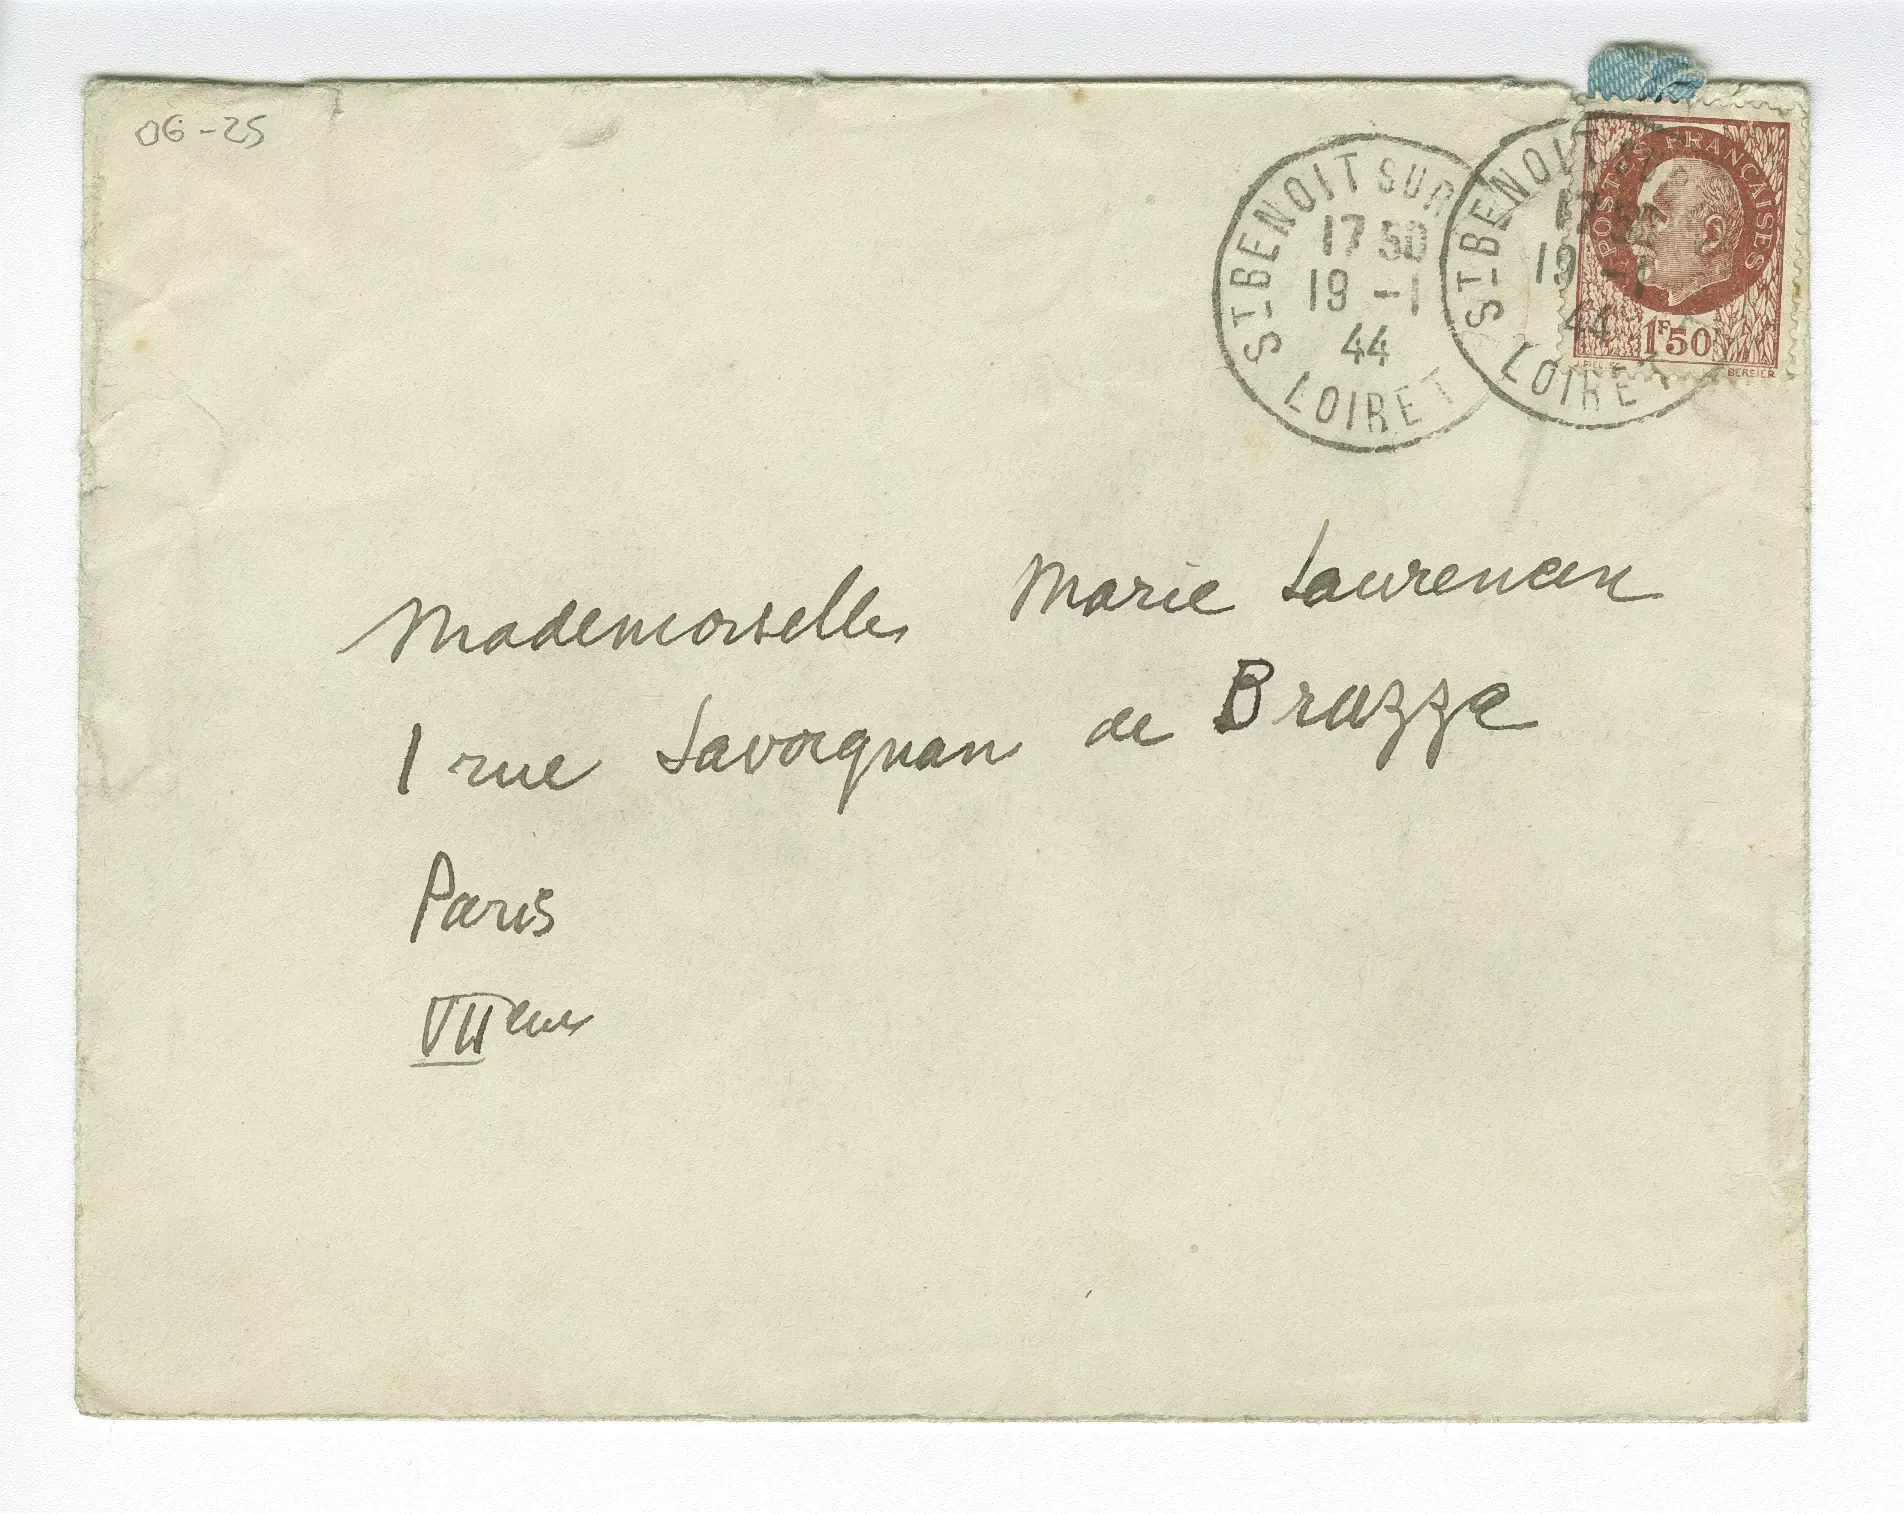 06-25
ST-BENOIT SUR
17 50
19 -1
44
LOIRET
ST-BENOIT SUR
17 50
19 -1
44
LOIRET
POSTES FRANÇAISES
1F50
BERSIER
Mademoiselle Marie Laurencin
1 rue Savorgnan de Brazza
Paris
VIIeme